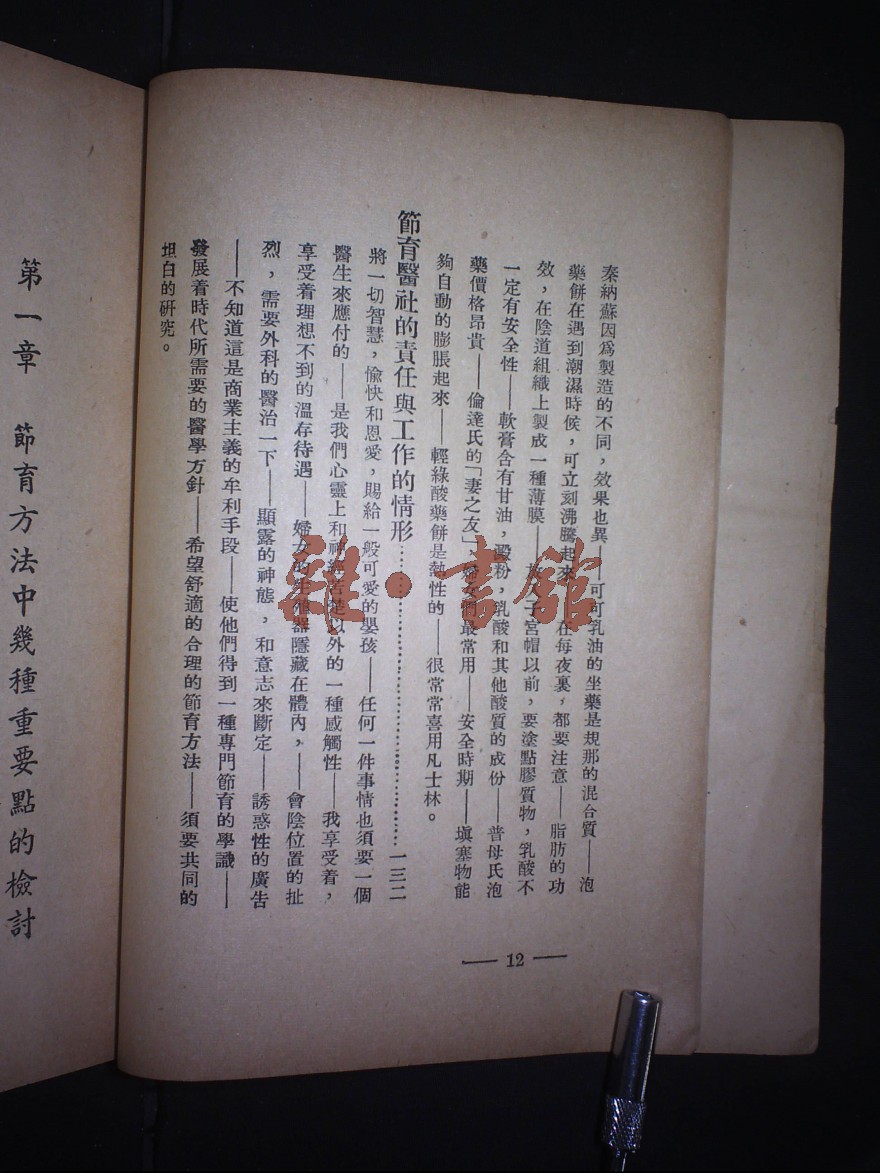 秦納蘇因爲製造的不同，效果也異——可可乳油的坐藥是規那的混合質——泡
藥餅在遇到潮濕時候，可立刻沸騰起來——在每夜裏，都要注意——脂肪的功
效，在陰道組織上製成一種薄膜——放入子宮帽以前，要塗點膠質物，乳酸不
一定有安全性——軟膏含有甘油，澱粉，乳酸和其他酸質的成份——普母氏泡
藥價格昂貴——倫達氏的「妻之友」，婦女們最常用——安全時期——塡塞物能
夠自動的膨脹起來——輕綠酸藥餅是熱性的——很常常喜用凡士林。
節育醫社的責任與工作的情形……………………………………一三二
將一切智慧，愉快和恩愛，賜給一般可愛的嬰孩——任何一件事情也須要一個
醫生來應付的——是我們心靈上和神經苦楚以外的一種感觸性——我享受着，
享受着理想不到的溫存待遇——婦女的生殖器隱藏在體內，——會陰位置的扯
烈，需要外科的醫治一下——顯露的神態，和意志來斷定——誘惑性的廣告
——不知道這是商業主義的牟利手段——使他們得到一種專門節育的學識——
發展着時代所需要的醫學方針——希望舒適的合理的節育方法——須要共同的
坦白的硏究。
— 12 —
第一章 節育方法中幾種重要點的檢討
雜·書館